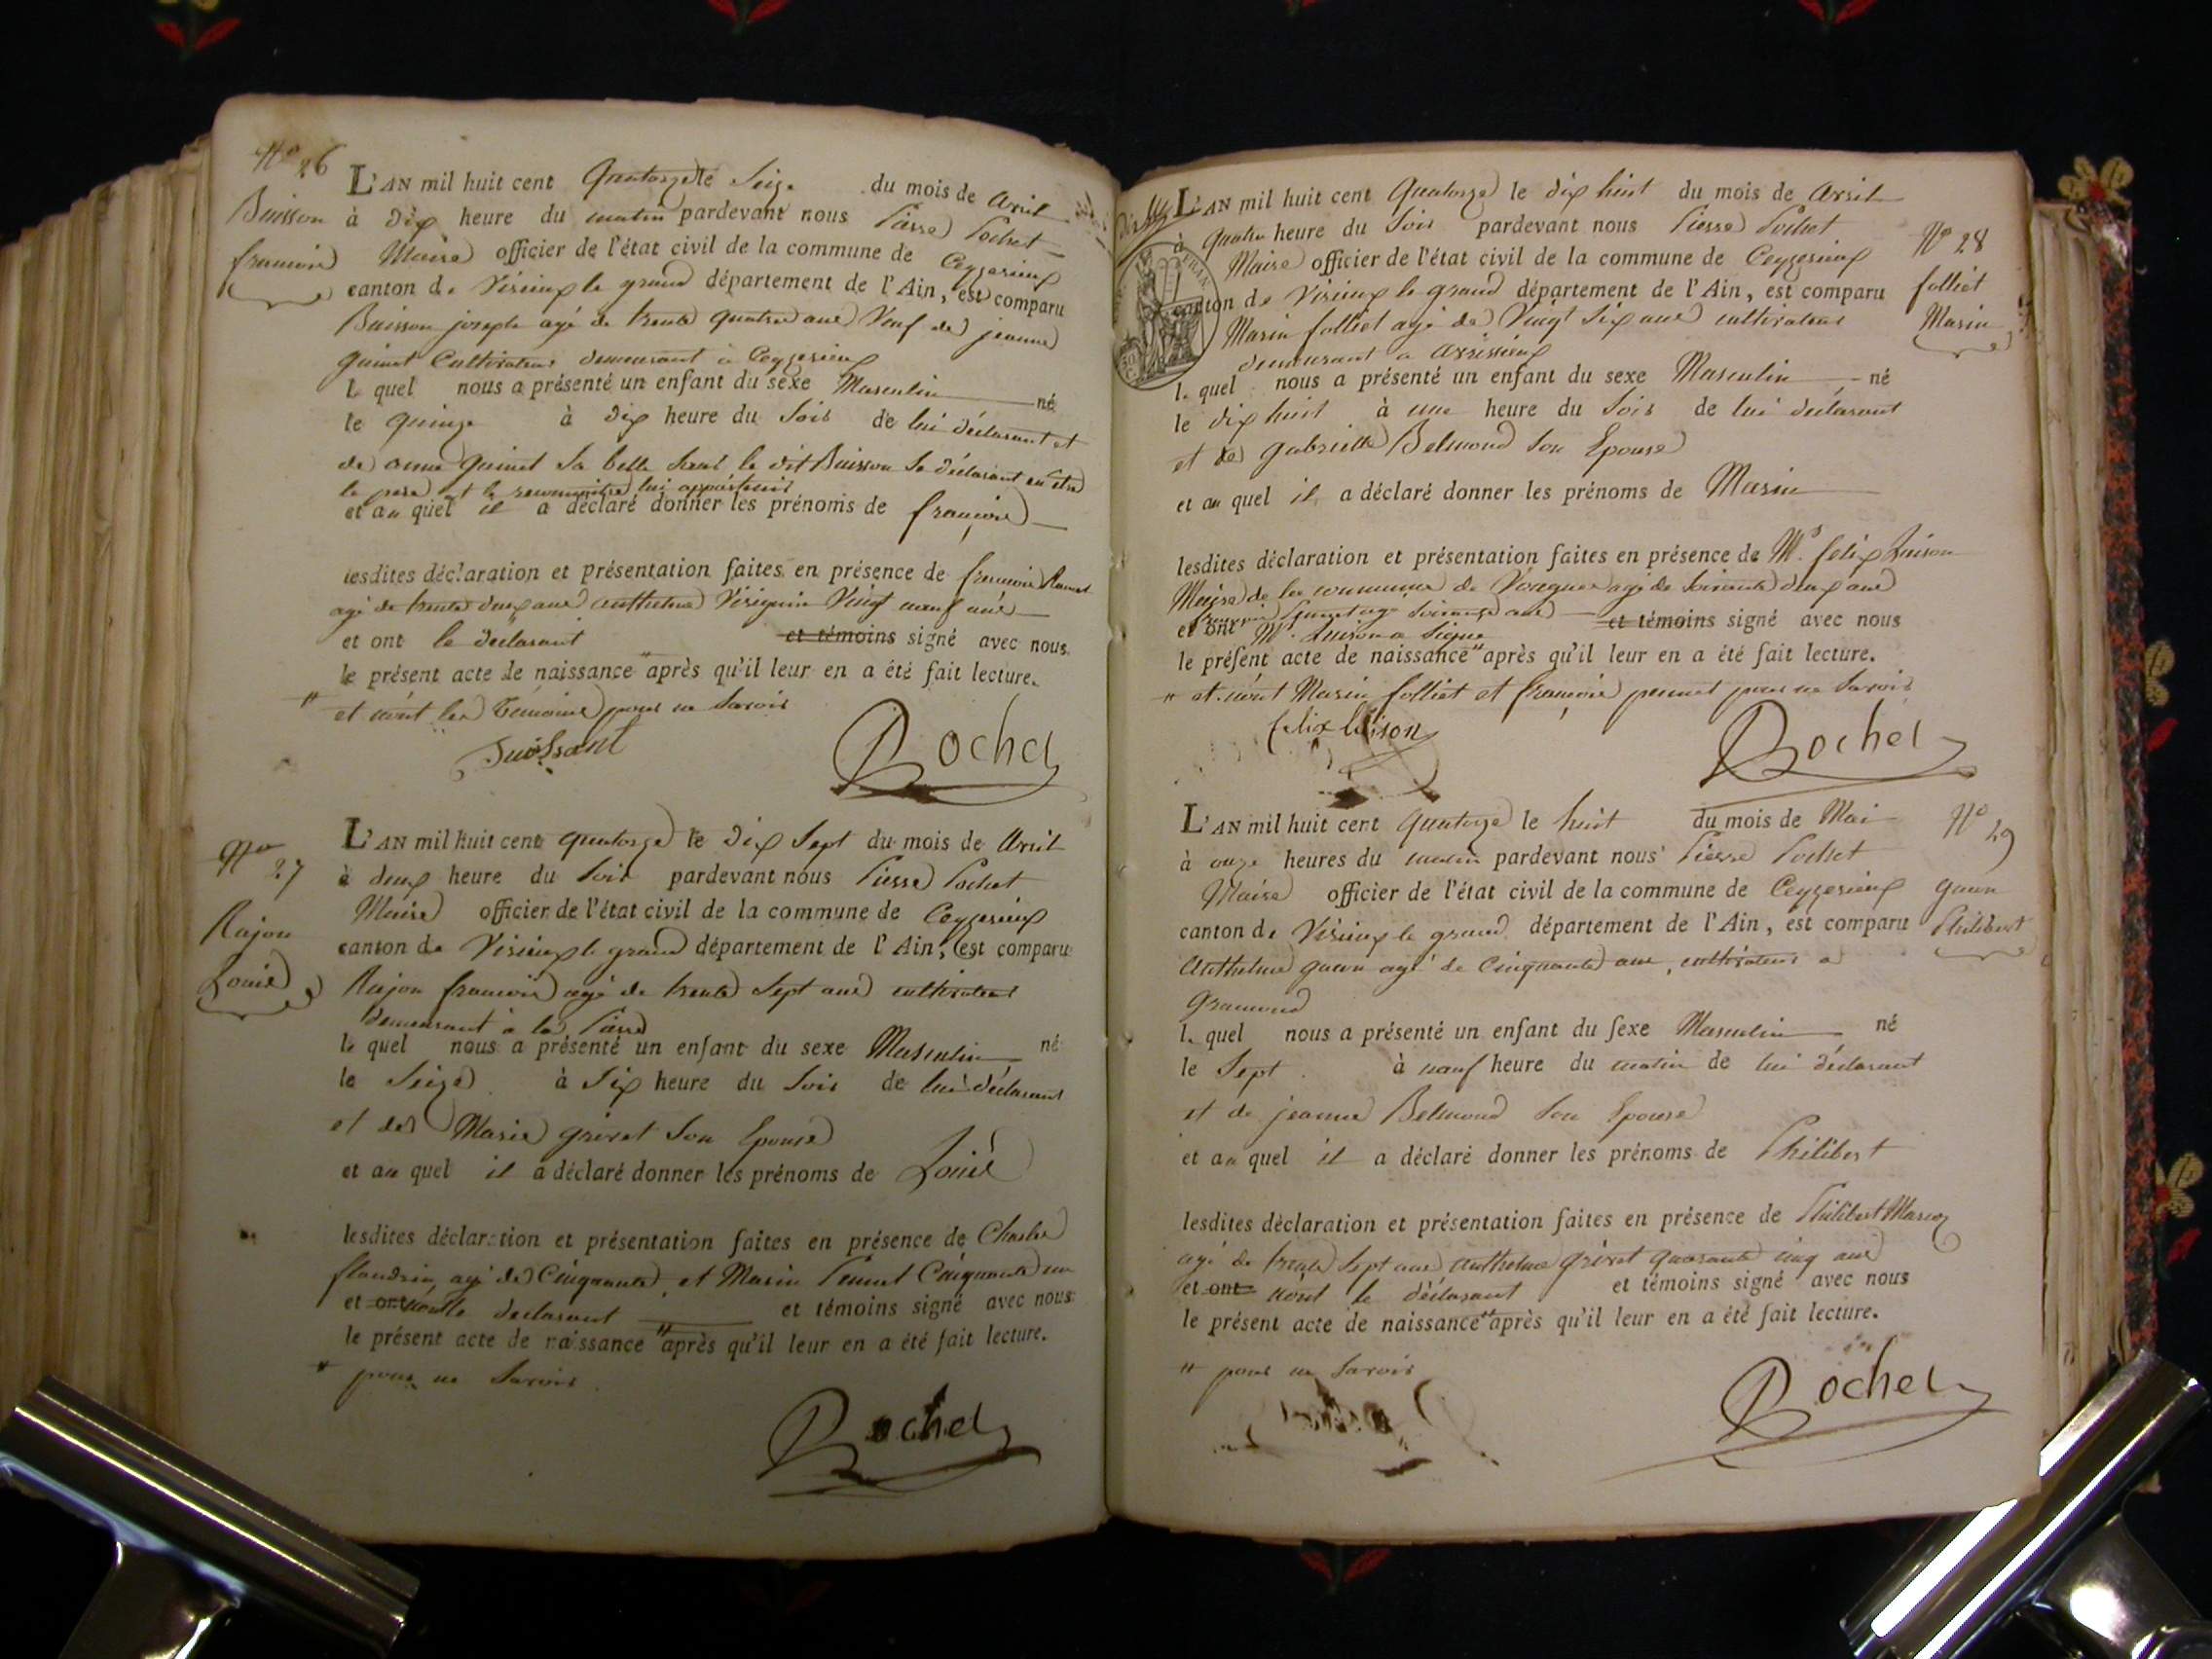 N° 26
Buisson
françois
L'AN mil huit cent Quatorze le Seize du mois de Avril
à Dix heure du matin pardevant nous Pierre Pochet
Maire officier de l'état civil de la commune de Ceyzerieux
canton de Virieux le grand département de l'Ain, est comparu
Buisson joseph agé de trente quatre ans Veuf de jeanne
guinet Cultivateur demeurant à Ceyzerieux
le quel nous a présenté un enfant du sexe Masculin né
le quinze à Dix heure du Soir de lui déclarant et
de anne guinet sa belle Sœur le dit Buisson se déclarant en être
le père et le reconnoitre lui appartenir
et au quel il a déclaré donner les prénoms de françois
lesdites déclaration et présentation faites en présence de francois Ramet
agé de trente deux ans anthelme Vint neuf ans
et ont le declarant et témoins signé avec nous
le présent acte de naissance " après qu'il leur en a été fait lecture.
" et nont les Témoins pour ne Savoir
Rochet
N° 27
Rajon
Louis
L'AN mil huit cent quatorze le Dix Sept du mois de Avril
à deux heure du Soir pardevant nous Pierre Pochet
Maire officier de l'état civil de la commune de Ceyzerieux
canton de Virieux le grand département de l'Ain, est comparu
Rajon francois agé de trente Sept ans cultivateur
demeurant à la Pierre
le quel nous a présenté un enfant du sexe Masculin né
le Seize à Six heure du Soir de lui déclarant
et de Marie grivet Son Epouse
et au quel il a déclaré donner les prénoms de Louis
lesdites déclaration et présentation faites en présence de Charle
flandrin agé de Cinquante et Marin Pennet Cinquante un
et ont nont le declarant et témoins signé avec nous
le présent acte de naissance " après qu'il leur en a été fait lecture.
" pour ne Savoir
Rochet
L'AN mil huit cent Quatorze le dix huit du mois de Avril
à quatre heure du Soir pardevant nous Pierre Pochet
Maire officier de l'état civil de la commune de Ceyzerieux
canton de Virieux le grand département de l'Ain, est comparu
Marin folliet agé de Vingt Six ans cultivateur
demeurant a Avrissieux
le quel nous a présenté un enfant du sexe Masculin né
le dix huit à une heure du Soir de lui déclarant
et de gabrielle Belmond Son Epouse
et au quel il a déclaré donner les prénoms de Marin
lesdites déclaration et présentation faites en présence de Mr. felix Luison
Maire de la commune de agé de Soixante deux ans
et ont Mr. Luison a Signé et témoins signé avec nous
le présent acte de naissance " après qu'il leur en a été fait lecture.
" et nont Marin folliet et françois pennet pour ne Savoir
felix luison
Rochet
N° 28
folliet
Marin
L'AN mil huit cent Quatorze le huit du mois de Mai
à onze heures du matin pardevant nous Pierre Pochet
Maire officier de l'état civil de la commune de Ceyzerieux
canton de Virieux le grand département de l'Ain, est comparu
Anthelme gaun agé de Cinquante ans, cultivateur a
Gramond
le quel nous a présenté un enfant du sexe Masculin né
le Sept à neuf heure du matin de lui déclarant
et de jeanne Belmond Son Epouse
et au quel il a déclaré donner les prénoms de Philibert
lesdites déclaration et présentation faites en présence de Philibert Marcoz
agé de trente Sept ans anthelme grivet quarante cinq ans
et ont nont le déclarant et témoins signé avec nous
le présent acte de naissance " après qu'il leur en a été fait lecture.
" pour ne Savoir
Rochet
N° 29
gaun
Philibert